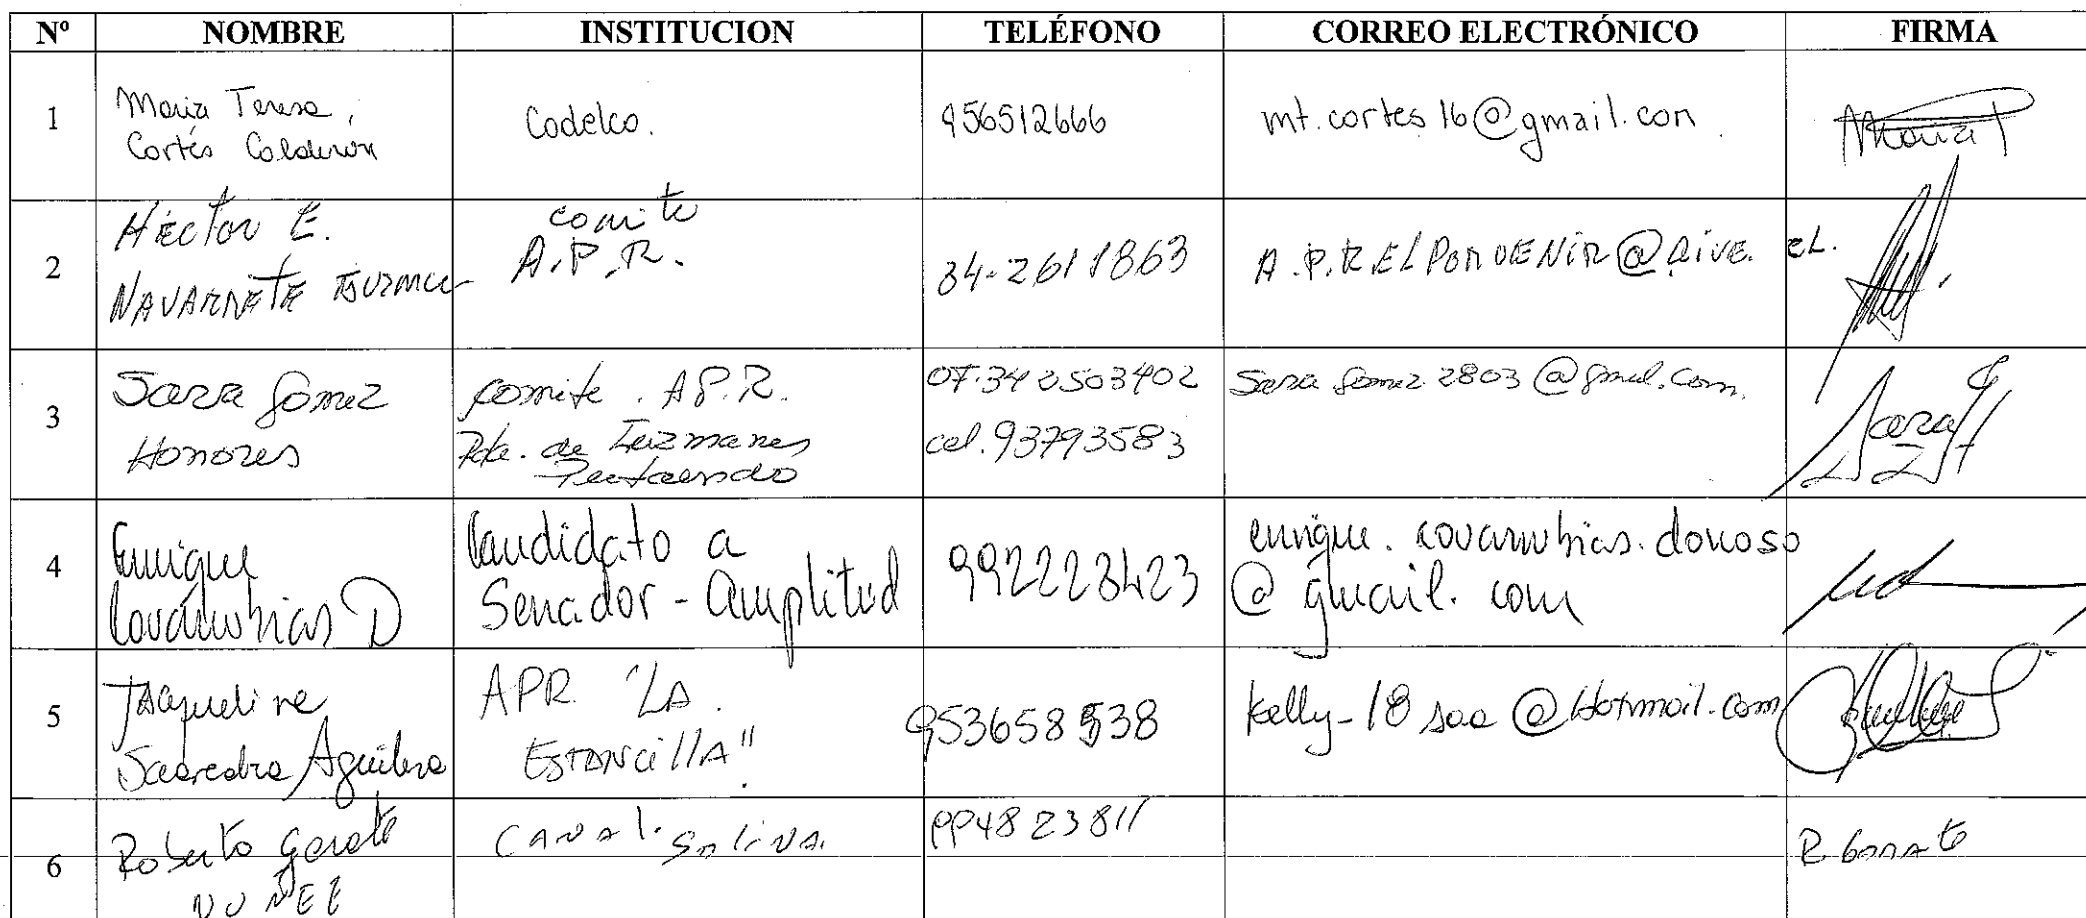 Nº NOMBRE INSTITUCION TELÉFONO CORREO ELECTRÓNICO FIRMA
1
Maria Teresa
Cortés Calderón
Codelco.
956512666
mt.cortes16@gmail.con
Maria T
2
Héctor E.
NAVARRETE
comite
A.P.R.
34-2611863
A.P.R ELPORVENIR@LIVE. CL.
3
Sara Gomez
Honores
comite . A.P.R.
Pde. de Guzmanes
Putaendo
07.34 2503402
cel.93793583
Sara Gomez 2803@gmail.com.
Sara
4
Enrique
Covarrubias D
Candidato a
Senador - Amplitud
992223423
enrique.covarrubias.donoso
@gmail.com
5
Jaqueline
Saavedra Aguilera
APR "LA
ESTANCILLA"
953658538
kelly-18 saa @Hotmail.com
6
Roberto Garate
NUÑEZ
CANAL SALINA.
994823811
R Garate